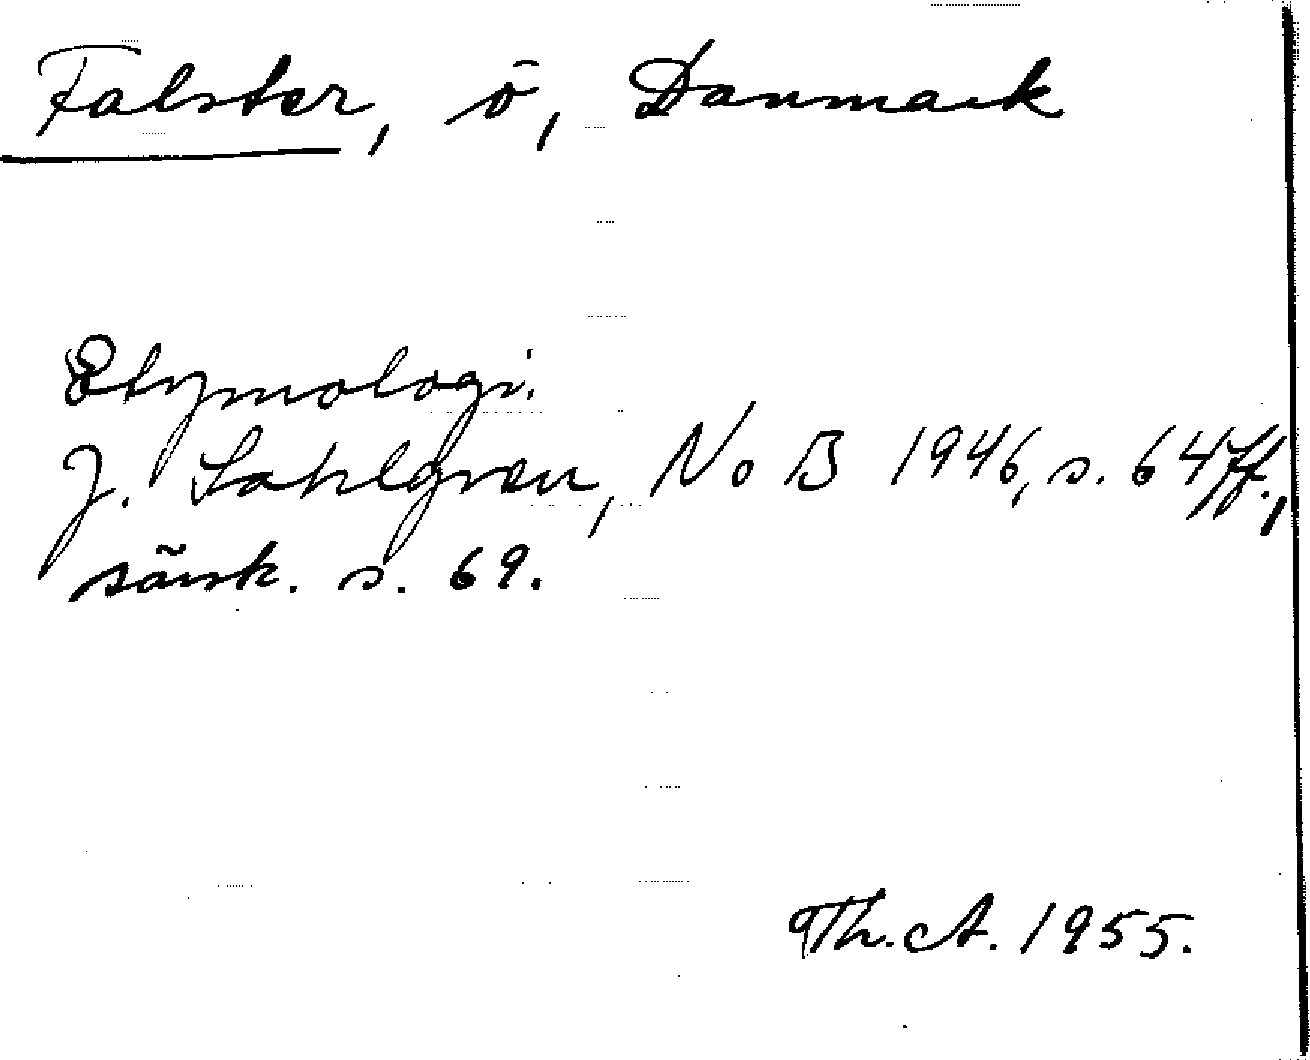 Falster, ö, Danmark
Etymologi.
J. Sahlgren, NoB 1946, s. 64 ff.,
särsk. s. 69.
Th. A. 1955.